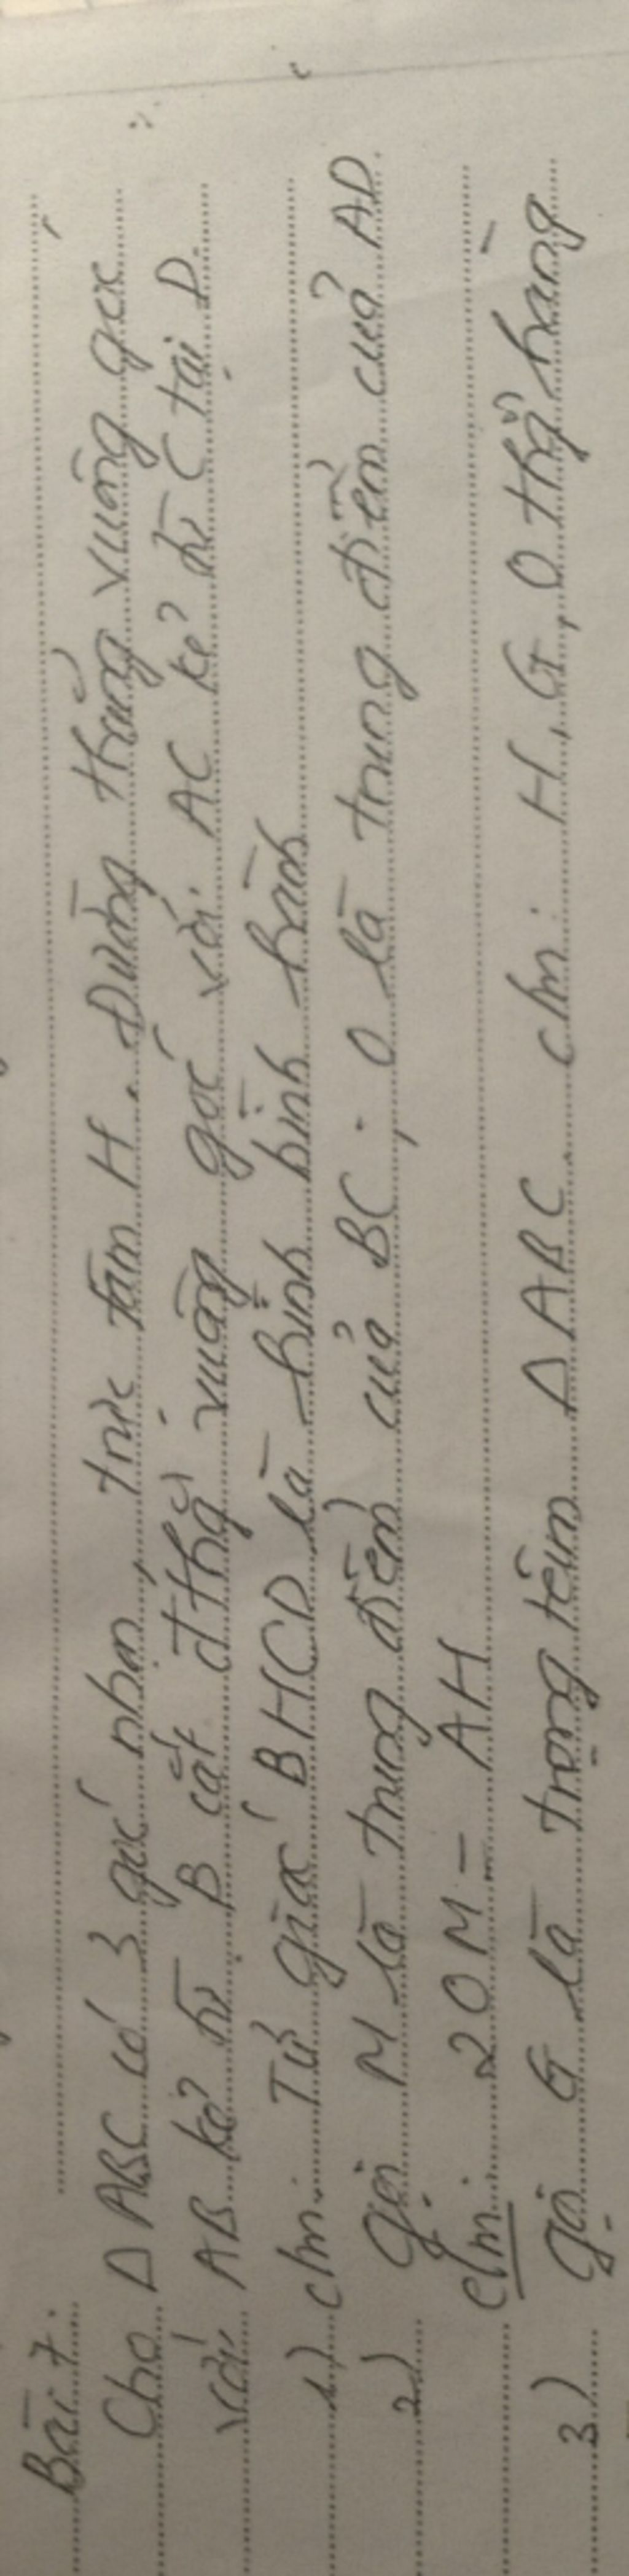 Bài 7.
Cho Δ ABC có 3 góc nhọn, trực tâm H. Đường thẳng vuông góc
với AB kẻ từ B cắt đ thg vuông góc với AC kẻ từ C tại D.
1) c/m: Tứ giác BHCD là hình bình hành
2) Gọi M là trung điểm của BC; O là trung điểm của AD.
c/m: 2OM = AH
3) Gọi G là trọng tâm Δ ABC. c/m: H, G, O thg hàng